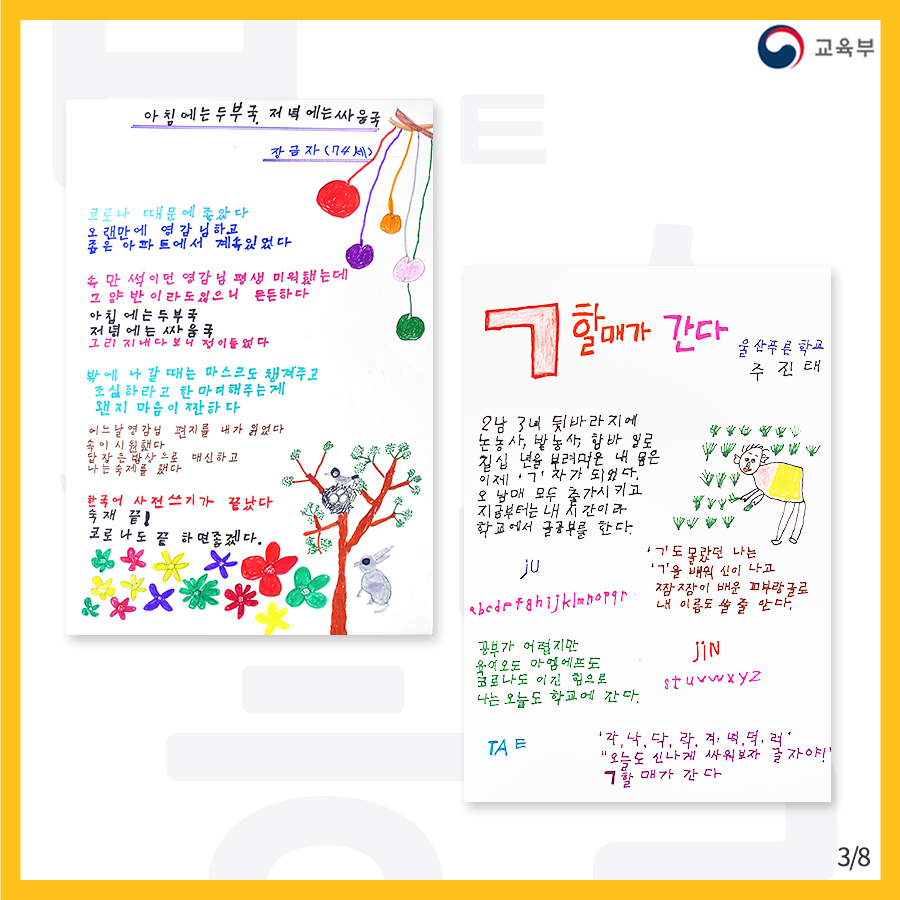 교육부
아침에는 두부국, 저녁에는 싸움국
장금자(74세)
코로나 때문에 좋았다
오랜만에 영감님하고
좁은 아파트에서 계속있었다
속만 썩이던 영감님 평생 미워했는데
그 양반이라도있으니 든든하다
아침에는 두부국
저녁에는 싸움국
그리 지내다 보니 정이들었다
밖에 나갈 때는 마스크도 챙겨주고
조심하라고 한마디해주는게
왠지 마음이 짠하다
어느날영감님 편지를 내가 읽었다
속이 시원했다
답장은 밥상으로 대신하고
나는숙제를 했다
한국어 사전쓰기가 끝났다
숙재 끝!
코로나도 끝 하면좋겠다.
ㄱ할매가 간다
울산푸른학교
주진태
2남 3녀 뒷바라지에
논농사, 밭농사, 함바 일로
칠십 년을 부려먹은 내 몸은
이제 'ㄱ'자가 되었다.
오 남매 모두 출가시키고
지금부터는 내 시간이라
학교에서 글공부를 한다.
'ㄱ'도 몰랐던 나는
'ㄱ'을 배워 신이 나고
짬짬이 배운 꼬부랑글로
내 이름도 쓸 줄 안다.
ju
abcdefghijklmnopqr
공부가 어렵지만
육이오도 아엠에프도
코로나도 이긴 힘으로
나는 오늘도 학교에 간다.
jiN
stuvwxyz
TAE
'각, 낙, 닥, 락, 겨, 벽, 덕, 러'
"오늘도 신나게 싸워보자 글자야!"
ㄱ할매가 간다
3/8